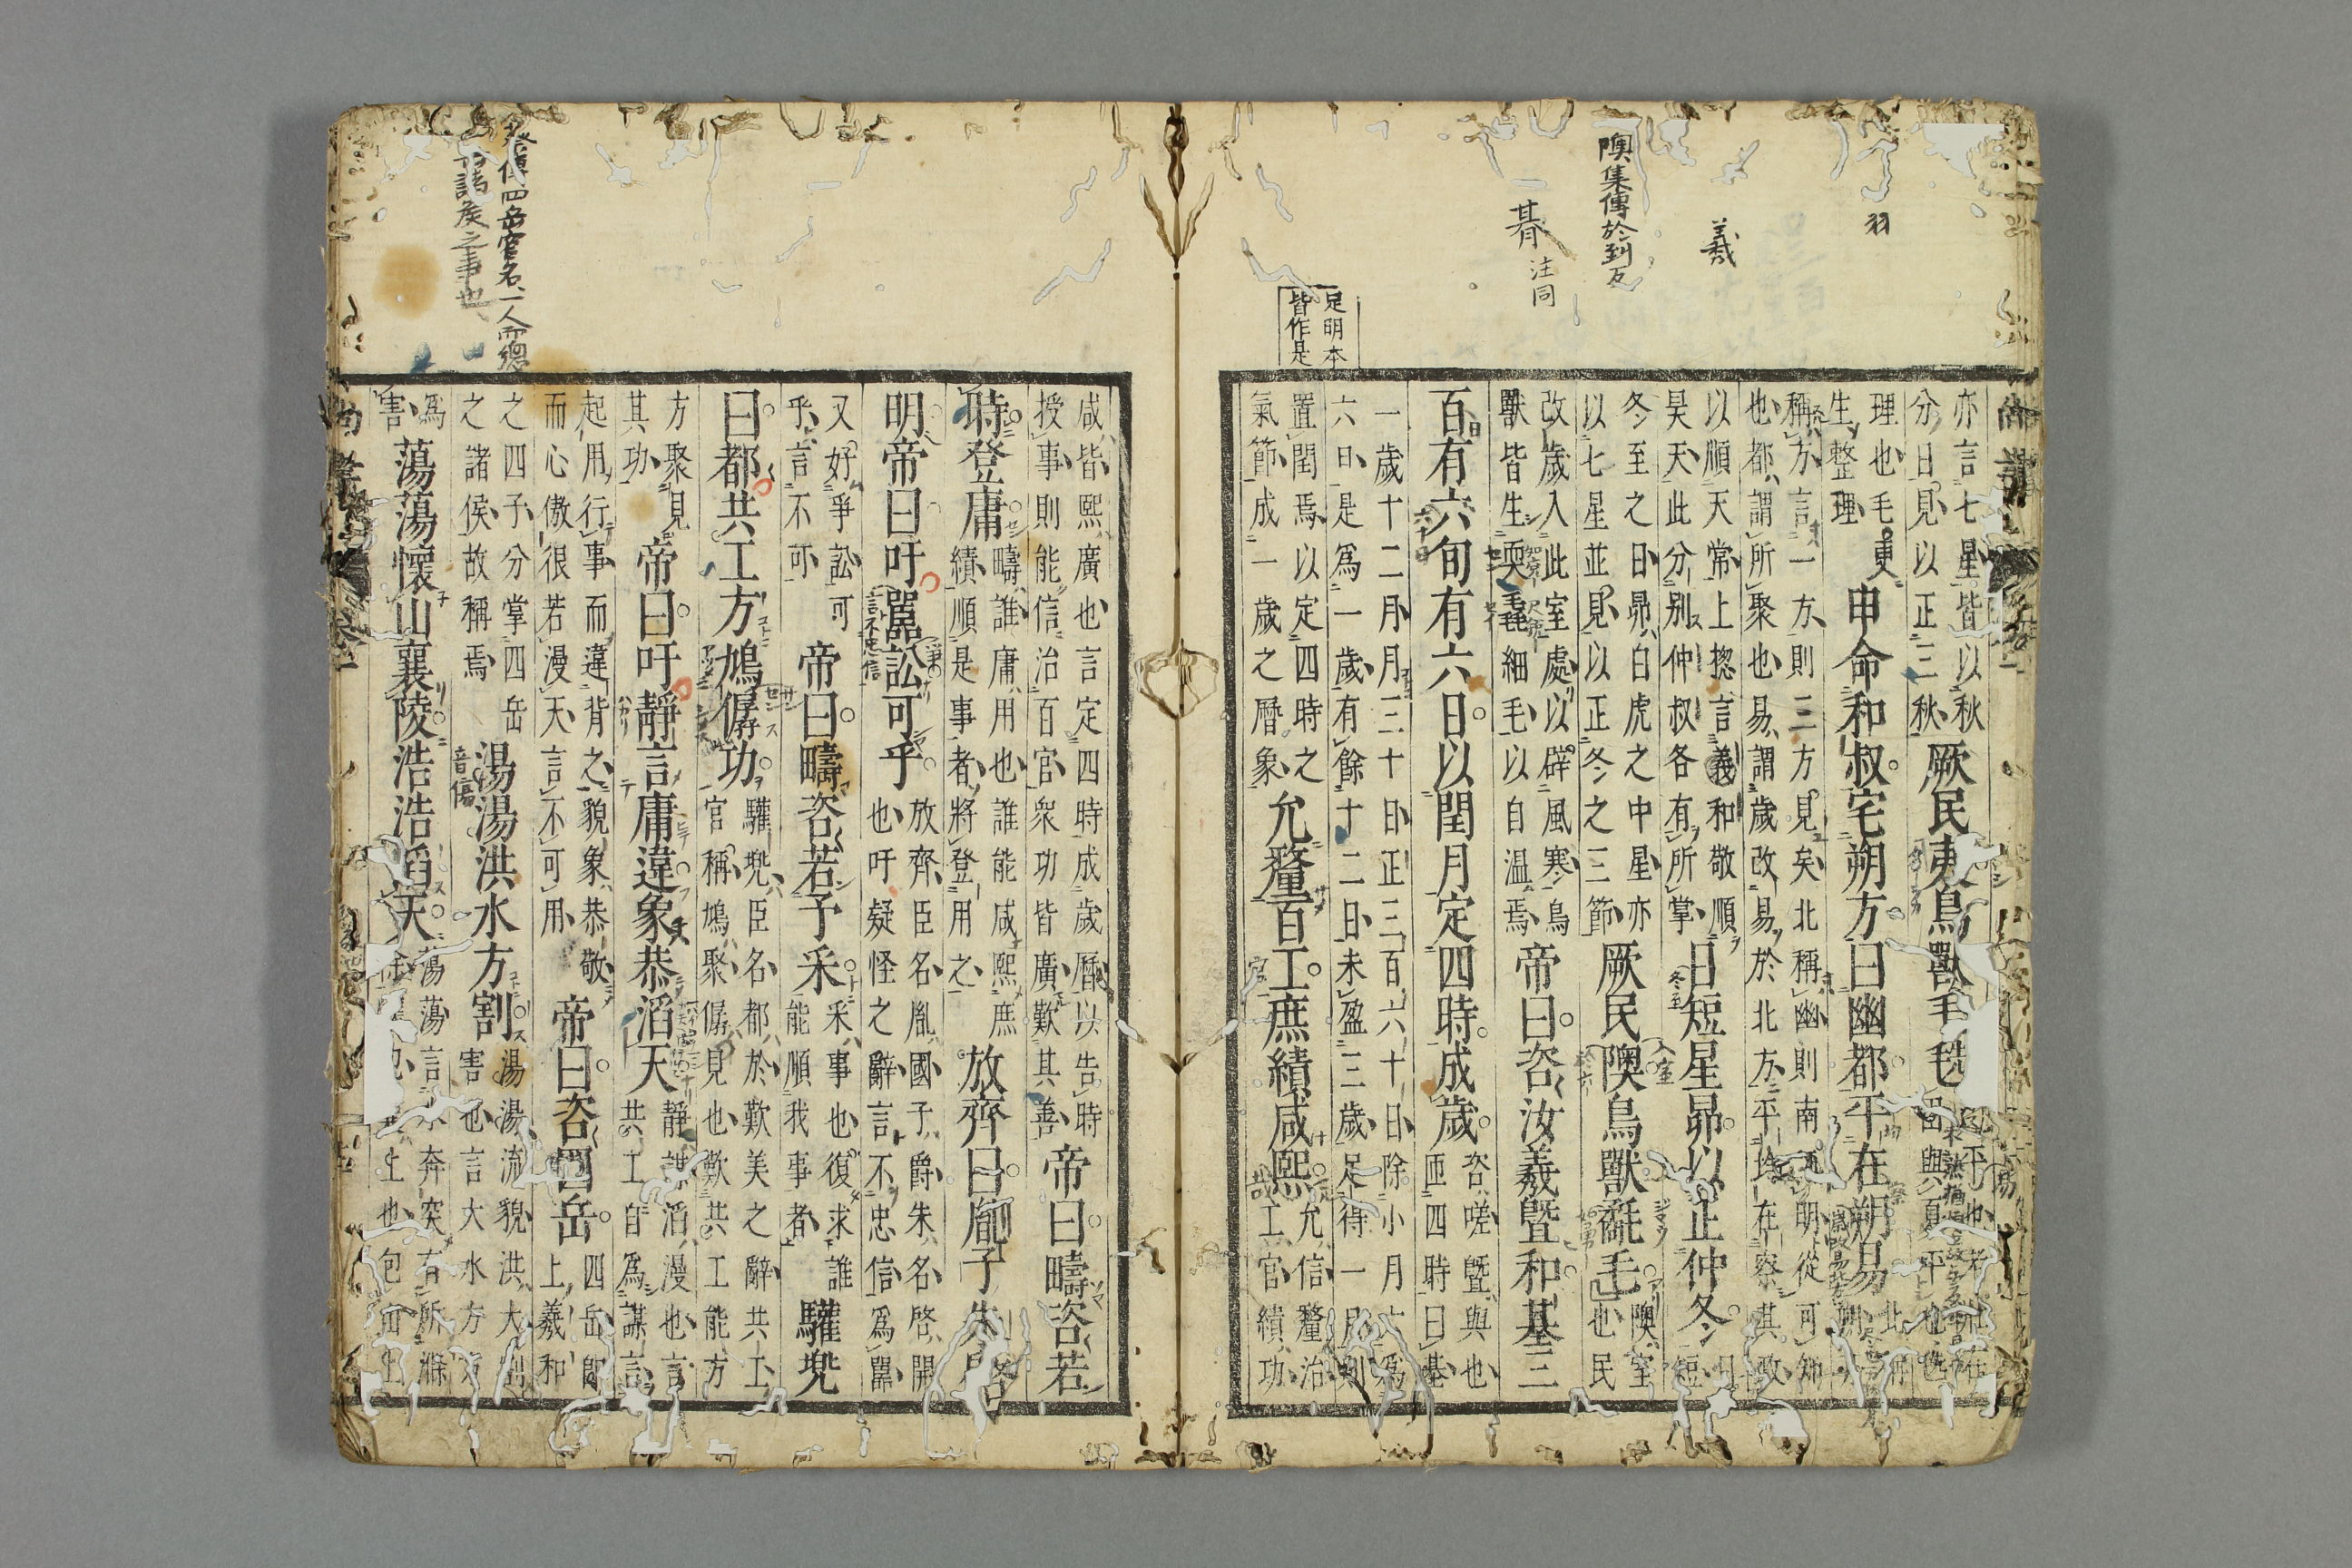 羽
義
隩集傳於到反
朞 注同
足明本
皆作是
亦言七星皆以秋
分日見以正三秋
厥民夷鳥獸毛毨
理也毛更
生整理
申命和叔宅朔方曰幽都平在朔易
稱方言一方則三方見矣北稱幽則南明從可知
也都謂所聚也易謂歲改易於北方平均在察其政
以順天常上揔言義和敬順
昊天此分別仲叔各有所掌
日短星昴以正仲冬
冬至之日昴白虎之中星亦
以七星並見以正冬之三節
厥民隩鳥獸氄毛
隩室
也民
改歲入此室處以辟風寒鳥
獸皆生耎毳細毛以自温焉
帝曰咨汝羲暨和朞三
百有六旬有六日以閏月定四時成歲
咨嗟暨與也
匝四時曰朞
一歲十二月月三十日正三百六十日除小月六爲
六日是爲一歲有餘十二日未盈三歲足得一月則
置閏焉以定四時之
氣節成一歲之曆象
允釐百工庶績咸熙
允信釐治
工官績功
咸皆熙廣也言定四時成歲曆以告時
授事則能信治百官衆功皆廣歎其善
帝曰疇咨若
時登庸
疇誰庸用也誰能咸熙庶
績順是事者將登用之
放齊曰胤子朱啓
明帝曰吁嚚訟可乎
放齊臣名胤國子爵朱名啓開
也吁疑怪之辭言不忠信爲嚚
又好爭訟可
乎言不可
帝曰疇咨若予采
采事也復求誰
能順我事者
驩兠
曰都共工方鳩僝功
驩兠臣名都於歎美之辭共工
官稱鳩聚僝見也歎共工能方
方聚見
其功
帝曰吁靜言庸違象恭滔天
靜謀滔漫也言
共工自爲謀言
起用行事而違背之貌象恭敬
而心傲很若漫天言不可用
帝曰咨四岳
四岳即
上羲和
之四子分掌四岳
之諸侯故稱焉
湯湯洪水方割
音傷
湯湯流貌洪大割
害也言大水方方
爲
害
蕩蕩懷山襄陵浩浩滔天
蕩蕩言水奔突有所滌
上也包山上
蔡傳四岳官名一人而總
諸侯之事也